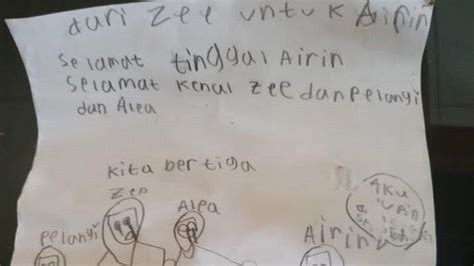 dari Zee untuk Airin
Selamat tinggal Airin
Selamat kenal Zee dan pelangi
dan Alea
kita bertiga
Zee
Alea
pelangi
Airin
AKU